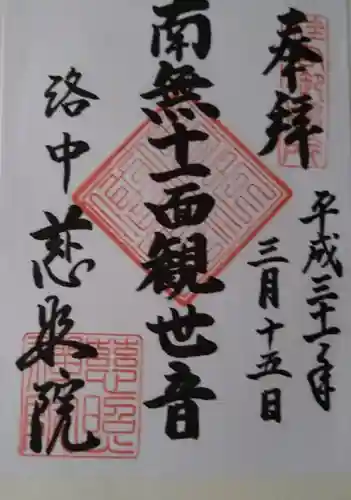 奉拝
平成三十一年
三月十五日
南無十一面観世音
洛中 慈眼院